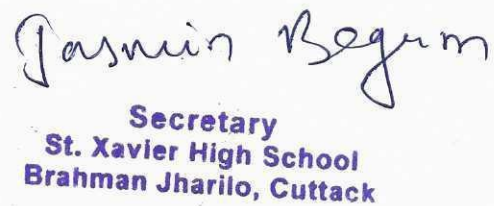 Jasmin Begum
Secretary
St. Xavier High School
Brahman Jharilo, Cuttack